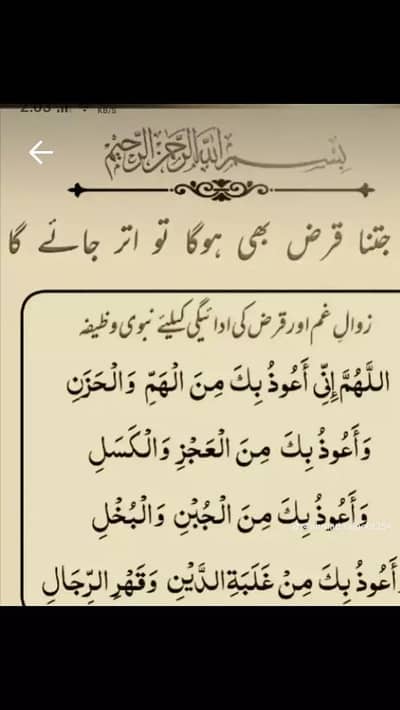 2:05
KB/S
بِسْمِ اللهِ الرَّحْمٰنِ الرَّحِيْمِ
جتنا قرض بھی ہوگا تو اتر جائے گا
زوالِ غم اور قرض کی ادائیگی کیلئے نبوی وظیفہ
اَللّٰهُمَّ إِنِّي أَعُوذُ بِكَ مِنَ الْهَمِّ وَالْحَزَنِ
وَأَعُوذُ بِكَ مِنَ الْعَجْزِ وَالْكَسَلِ
وَأَعُوذُ بِكَ مِنَ الْجُبْنِ وَالْبُخْلِ
أَعُوذُ بِكَ مِنْ غَلَبَةِ الدَّيْنِ وَقَهْرِ الرِّجَالِ